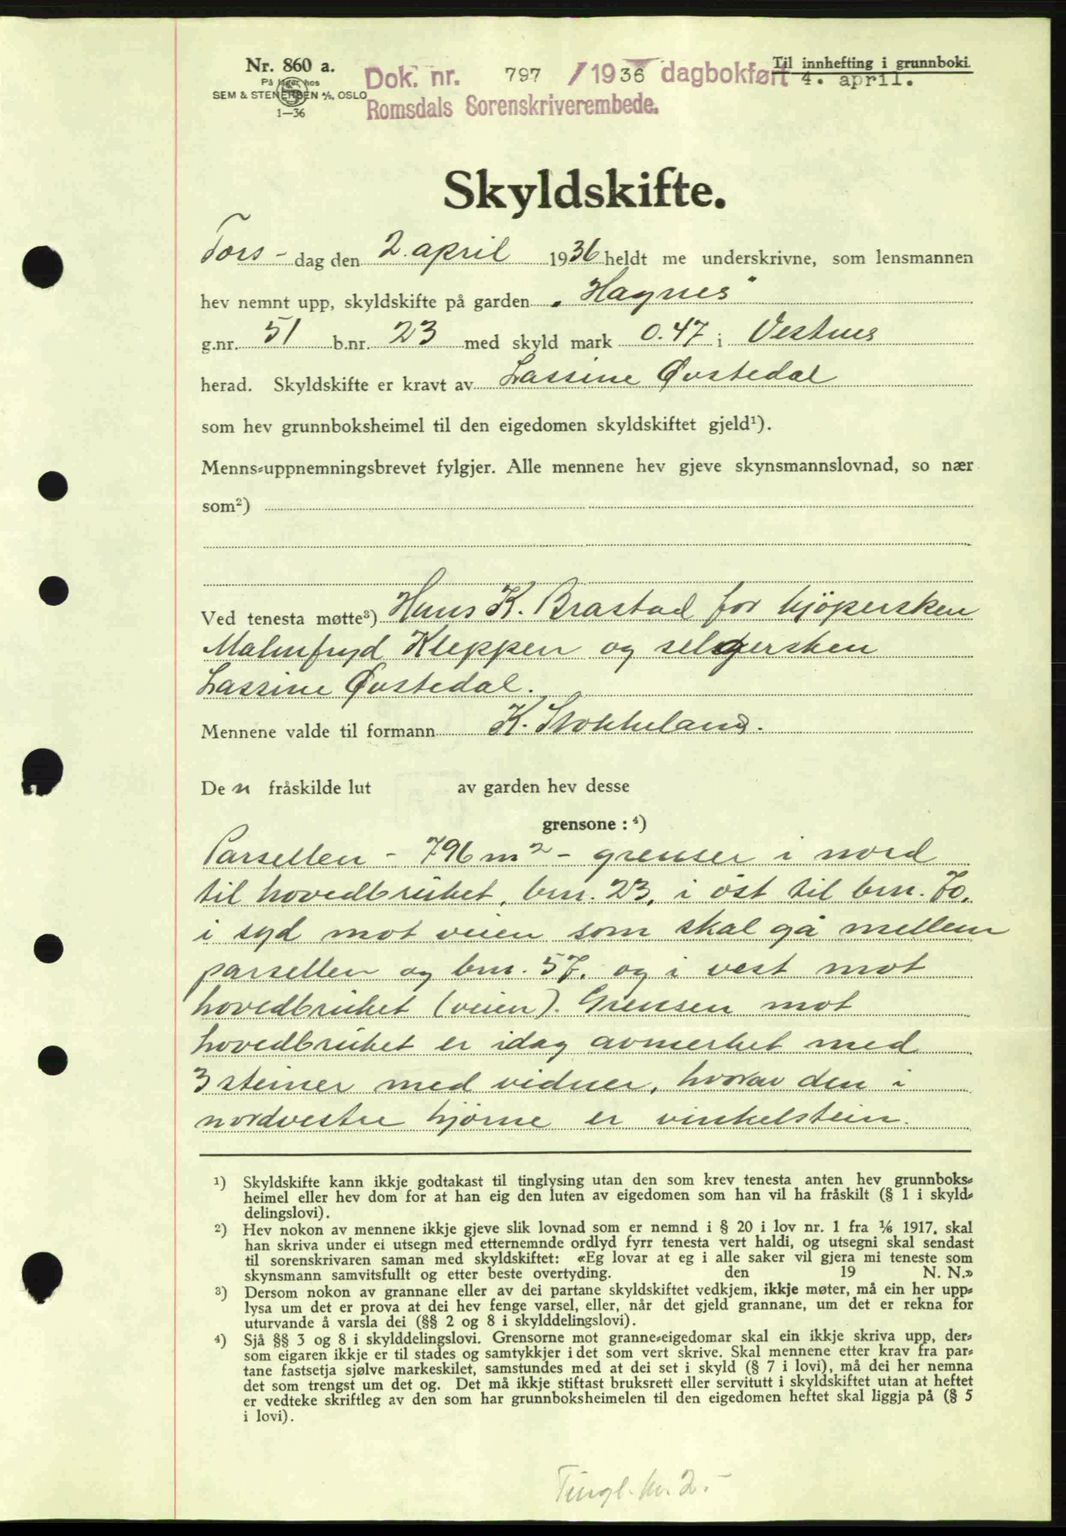 Nr. 860 a.
På lager hos
SEM & STENERSEN A/S, OSLO
1—36
Dok. nr. 797 /1936 dagbokført 4. april.
Romsdals Sorenskriverembede.
Til innhefting i grunnboki.
Skyldskifte.
Tors- dag den 2. april 1936 heldt me underskrivne, som lensmannen
hev nemnt upp, skyldskifte på garden "Hagnes"
g.nr. 51 b.nr. 23 med skyld mark 0.47 i Vestnes
herad. Skyldskifte er kravt av Lassine Øvstedal
som hev grunnboksheimel til den eigedomen skyldskiftet gjeld¹).
Menns-uppnemningsbrevet fylgjer. Alle mennene hev gjeve skynsmannslovnad, so nær
som²)
Ved tenesta møtte³) Hans K. Brastad for kjöpersken
Malmfryd Kleppen og selgersken
Lassine Øvstedal.
Mennene valde til formann K. Stokkeland.
De n fråskilde lut av garden hev desse
grensone : ⁴)
Parsellen - 796 m² - grenser i nord
til hovedbruket, bnr. 23, i öst til bnr. 70,
i syd mot veien som skal gå mellem
parsellen og bnr. 57, og i vest mot
hovedbruket (veien). Grensen mot
hovedbruket er idag avmerket med
3 steiner med vidner, hvorav den i
nordvestre hjörne er vinkelstein.
¹) Skyldskifte kann ikkje godtakast til tinglysing utan den som krev tenesta anten hev grunnboks-
heimel eller hev dom for at han eig den luten av eigedomen som han vil ha fråskilt (§ 1 i skyld-
delingslovi).
²) Hev nokon av mennene ikkje gjeve slik lovnad som er nemnd i § 20 i lov nr. 1 fra ⅙ 1917, skal
han skriva under ei utsegn med etternemnde ordlyd fyrr tenesta vert haldi, og utsegni skal sendast
til sorenskrivaren saman med skyldskiftet: «Eg lovar at eg i alle saker vil gjera mi teneste som
skynsmann samvitsfullt og etter beste overtyding. den 19 N. N.»
³) Dersom nokon av grannane eller av dei partane skyldskiftet vedkjem, ikkje møter, må ein her upp-
lysa um det er prova at dei hev fenge varsel, eller, når det gjeld grannane, um det er rekna for
uturvande å varsla dei (§§ 2 og 8 i skylddelingslovi).
⁴) Sjå §§ 3 og 8 i skylddelingslovi. Grensorne mot granne-eigedomar skal ein ikkje skriva upp, der-
som eigaren ikkje er til stades og samtykkjer i det som vert skrive. Skal mennene etter krav fra par-
tane fastsetja sjølve markeskilet, samstundes med at dei set i skyld (§ 7 i lovi), må dei her nemna
det som trengst um det og. Det må ikkje stiftast bruksrett eller servitutt i skyldskiftet utan at heftet
er vedteke skriftleg av den som har grunnboksheimelen til den eigedomen heftet skal liggja på (§ 5
i lovi).
Tingl. kr. 2.-